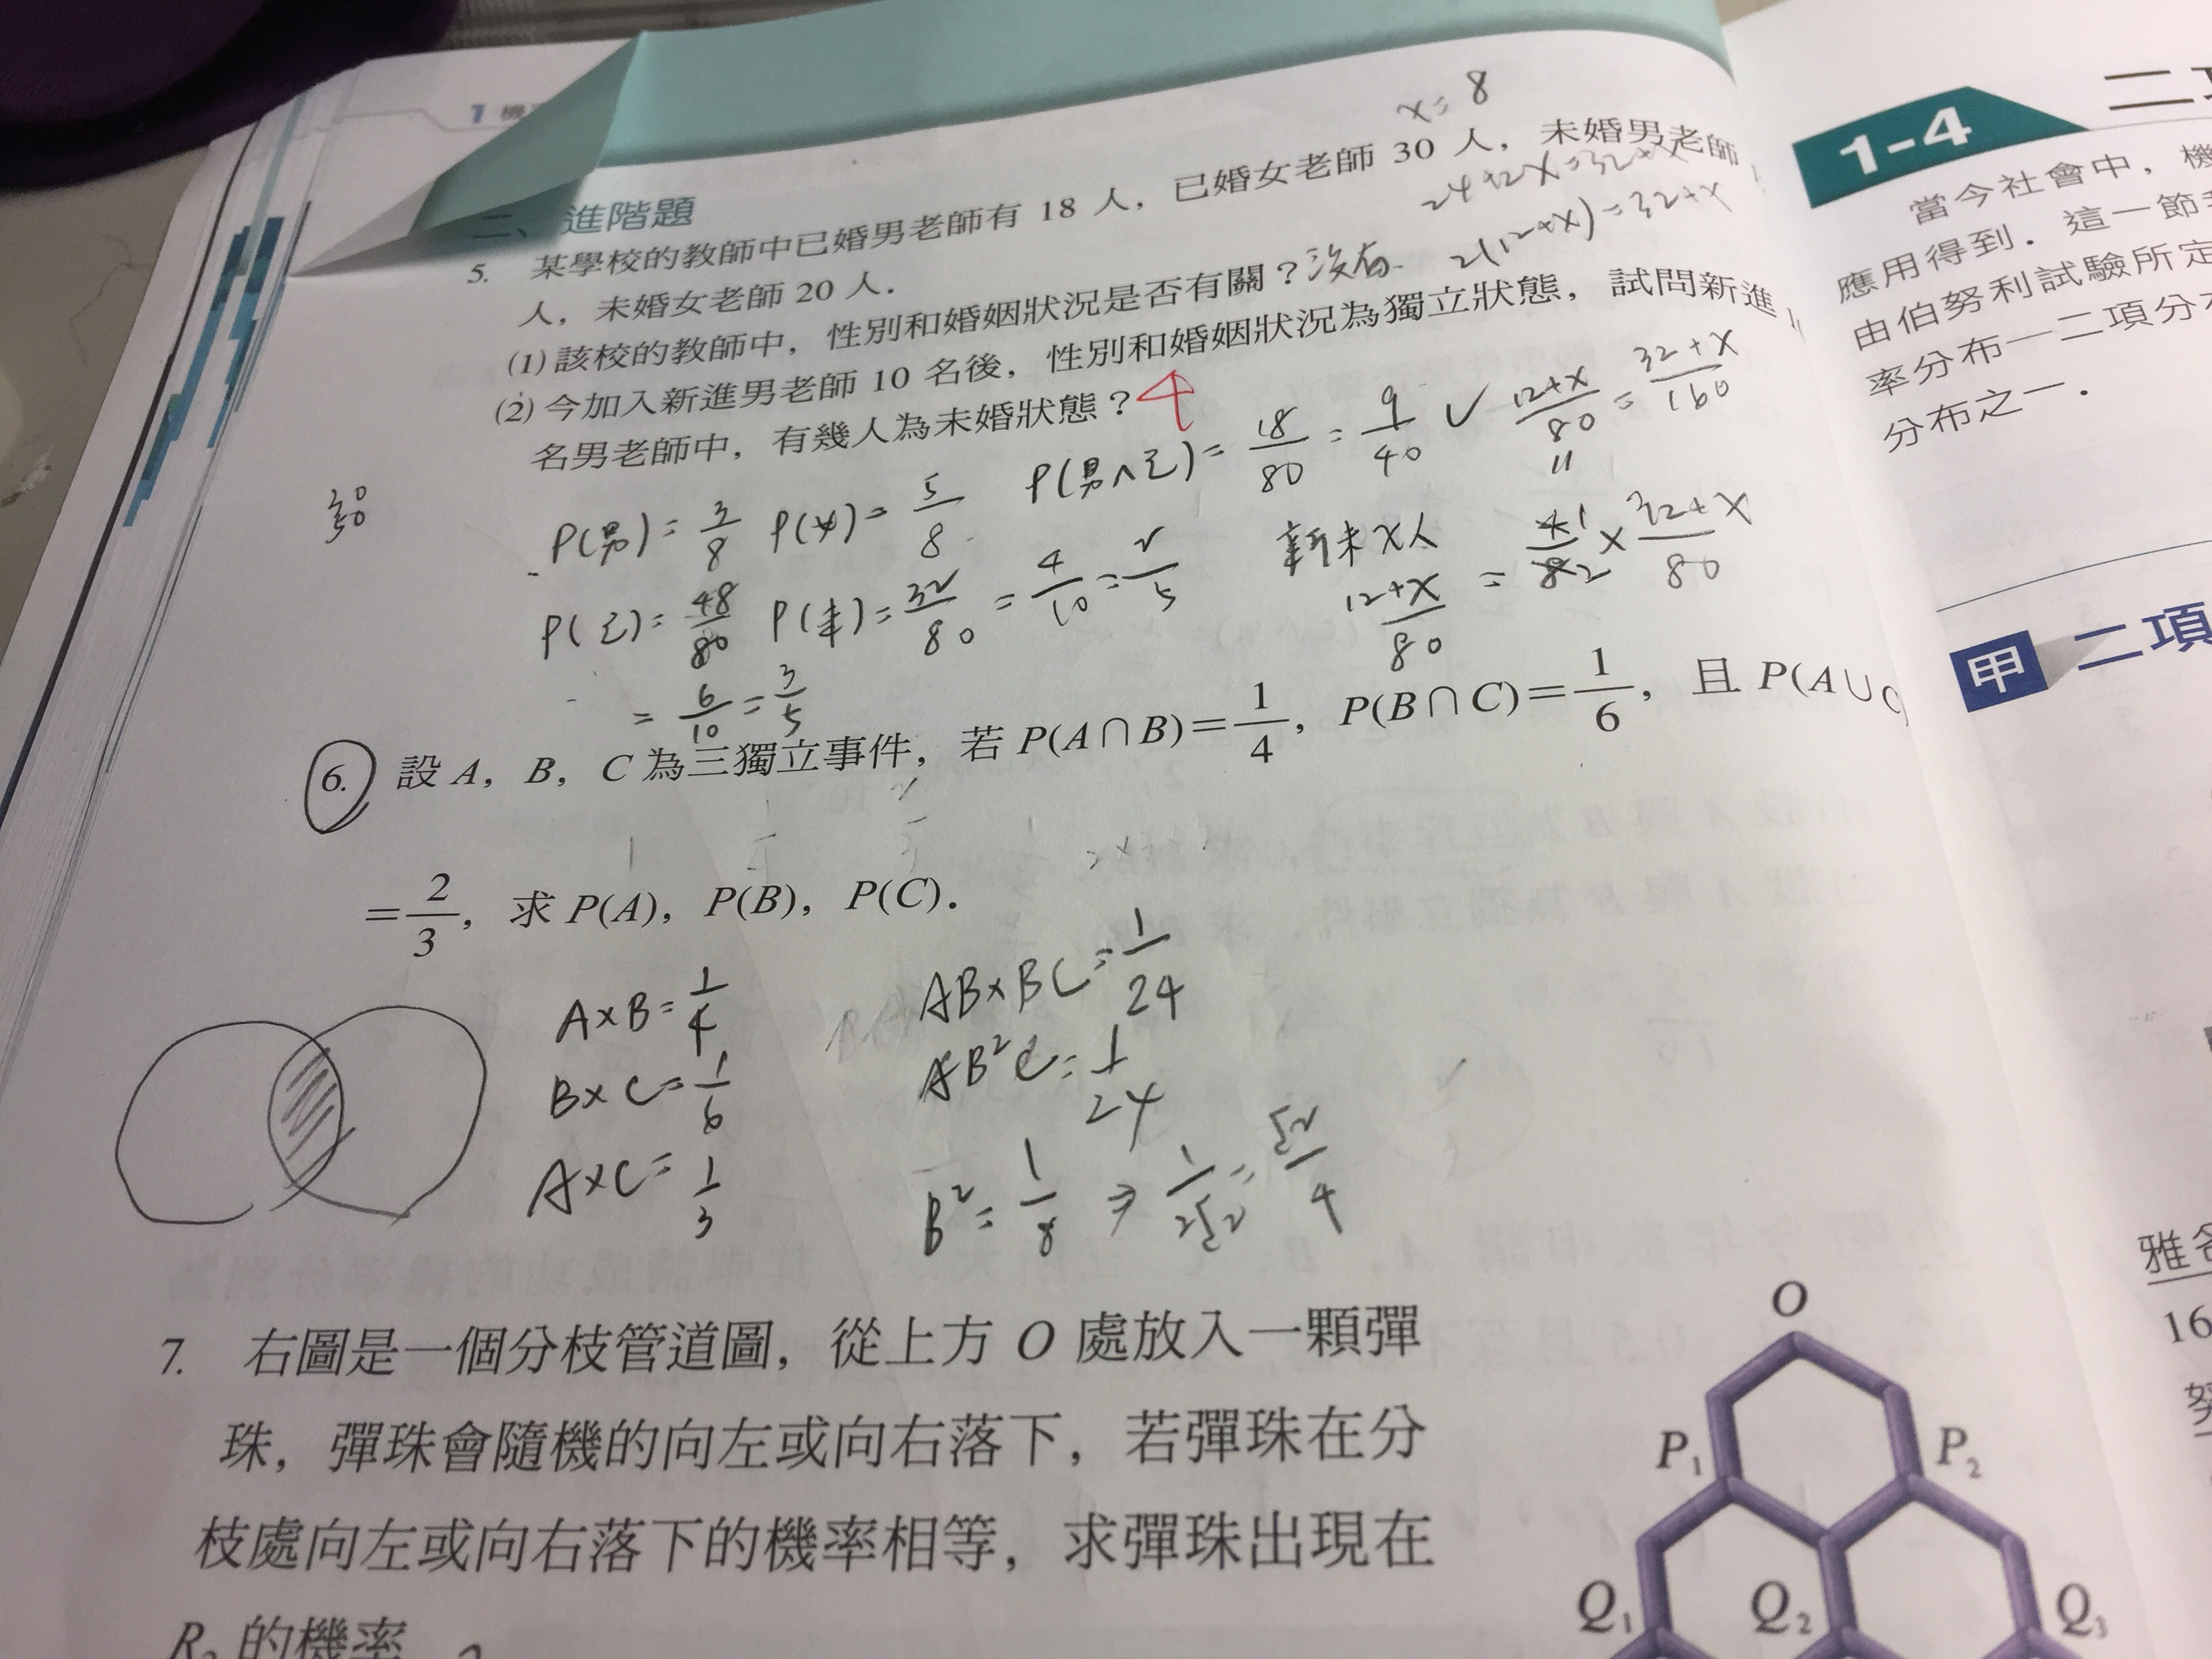 1 機
二、進階題
x = 8
5. 某學校的教師中已婚男老師有 18 人，已婚女老師 30 人，未婚男老師
人，未婚女老師 20 人．
24+2x=32+x
2(12+x)=32+x
(1) 該校的教師中，性別和婚姻狀況是否有關？沒有
(2) 今加入新進男老師 10 名後，性別和婚姻狀況為獨立狀態，試問新進
名男老師中，有幾人為未婚狀態？ 4
P(男) = 3/8 P(女) = 5/8 P(男∧已) = 18/80 = 9/40 ✓
12+x/80 = 32+x/160
P(已) = 48/80 P(未) = 32/80 = 4/10 = 2/5
= 6/10 = 3/5
新未 x人
12+x/80 = 41/82 × 32+x/80
6. 設 A，B，C 為三獨立事件，若 P(A∩B)=1/4，P(B∩C)=1/6，且 P(A∪C)
=2/3，求 P(A)，P(B)，P(C)．
A×B = 1/4
B×C = 1/6
A×C = 1/3
AB×BC = 1/24
AB²C = 1/24
B² = 1/8 ⇒ 1/2√2 = √2/4
7. 右圖是一個分枝管道圖，從上方 O 處放入一顆彈
珠，彈珠會隨機的向左或向右落下，若彈珠在分
枝處向左或向右落下的機率相等，求彈珠出現在
的機率
O
P₁ P₂
Q₁ Q₂ Q₃
1-4 二項
當今社會中，機
應用得到．這一節
由伯努利試驗所定
率分布—二項分
分布之一．
甲 二項
雅
16